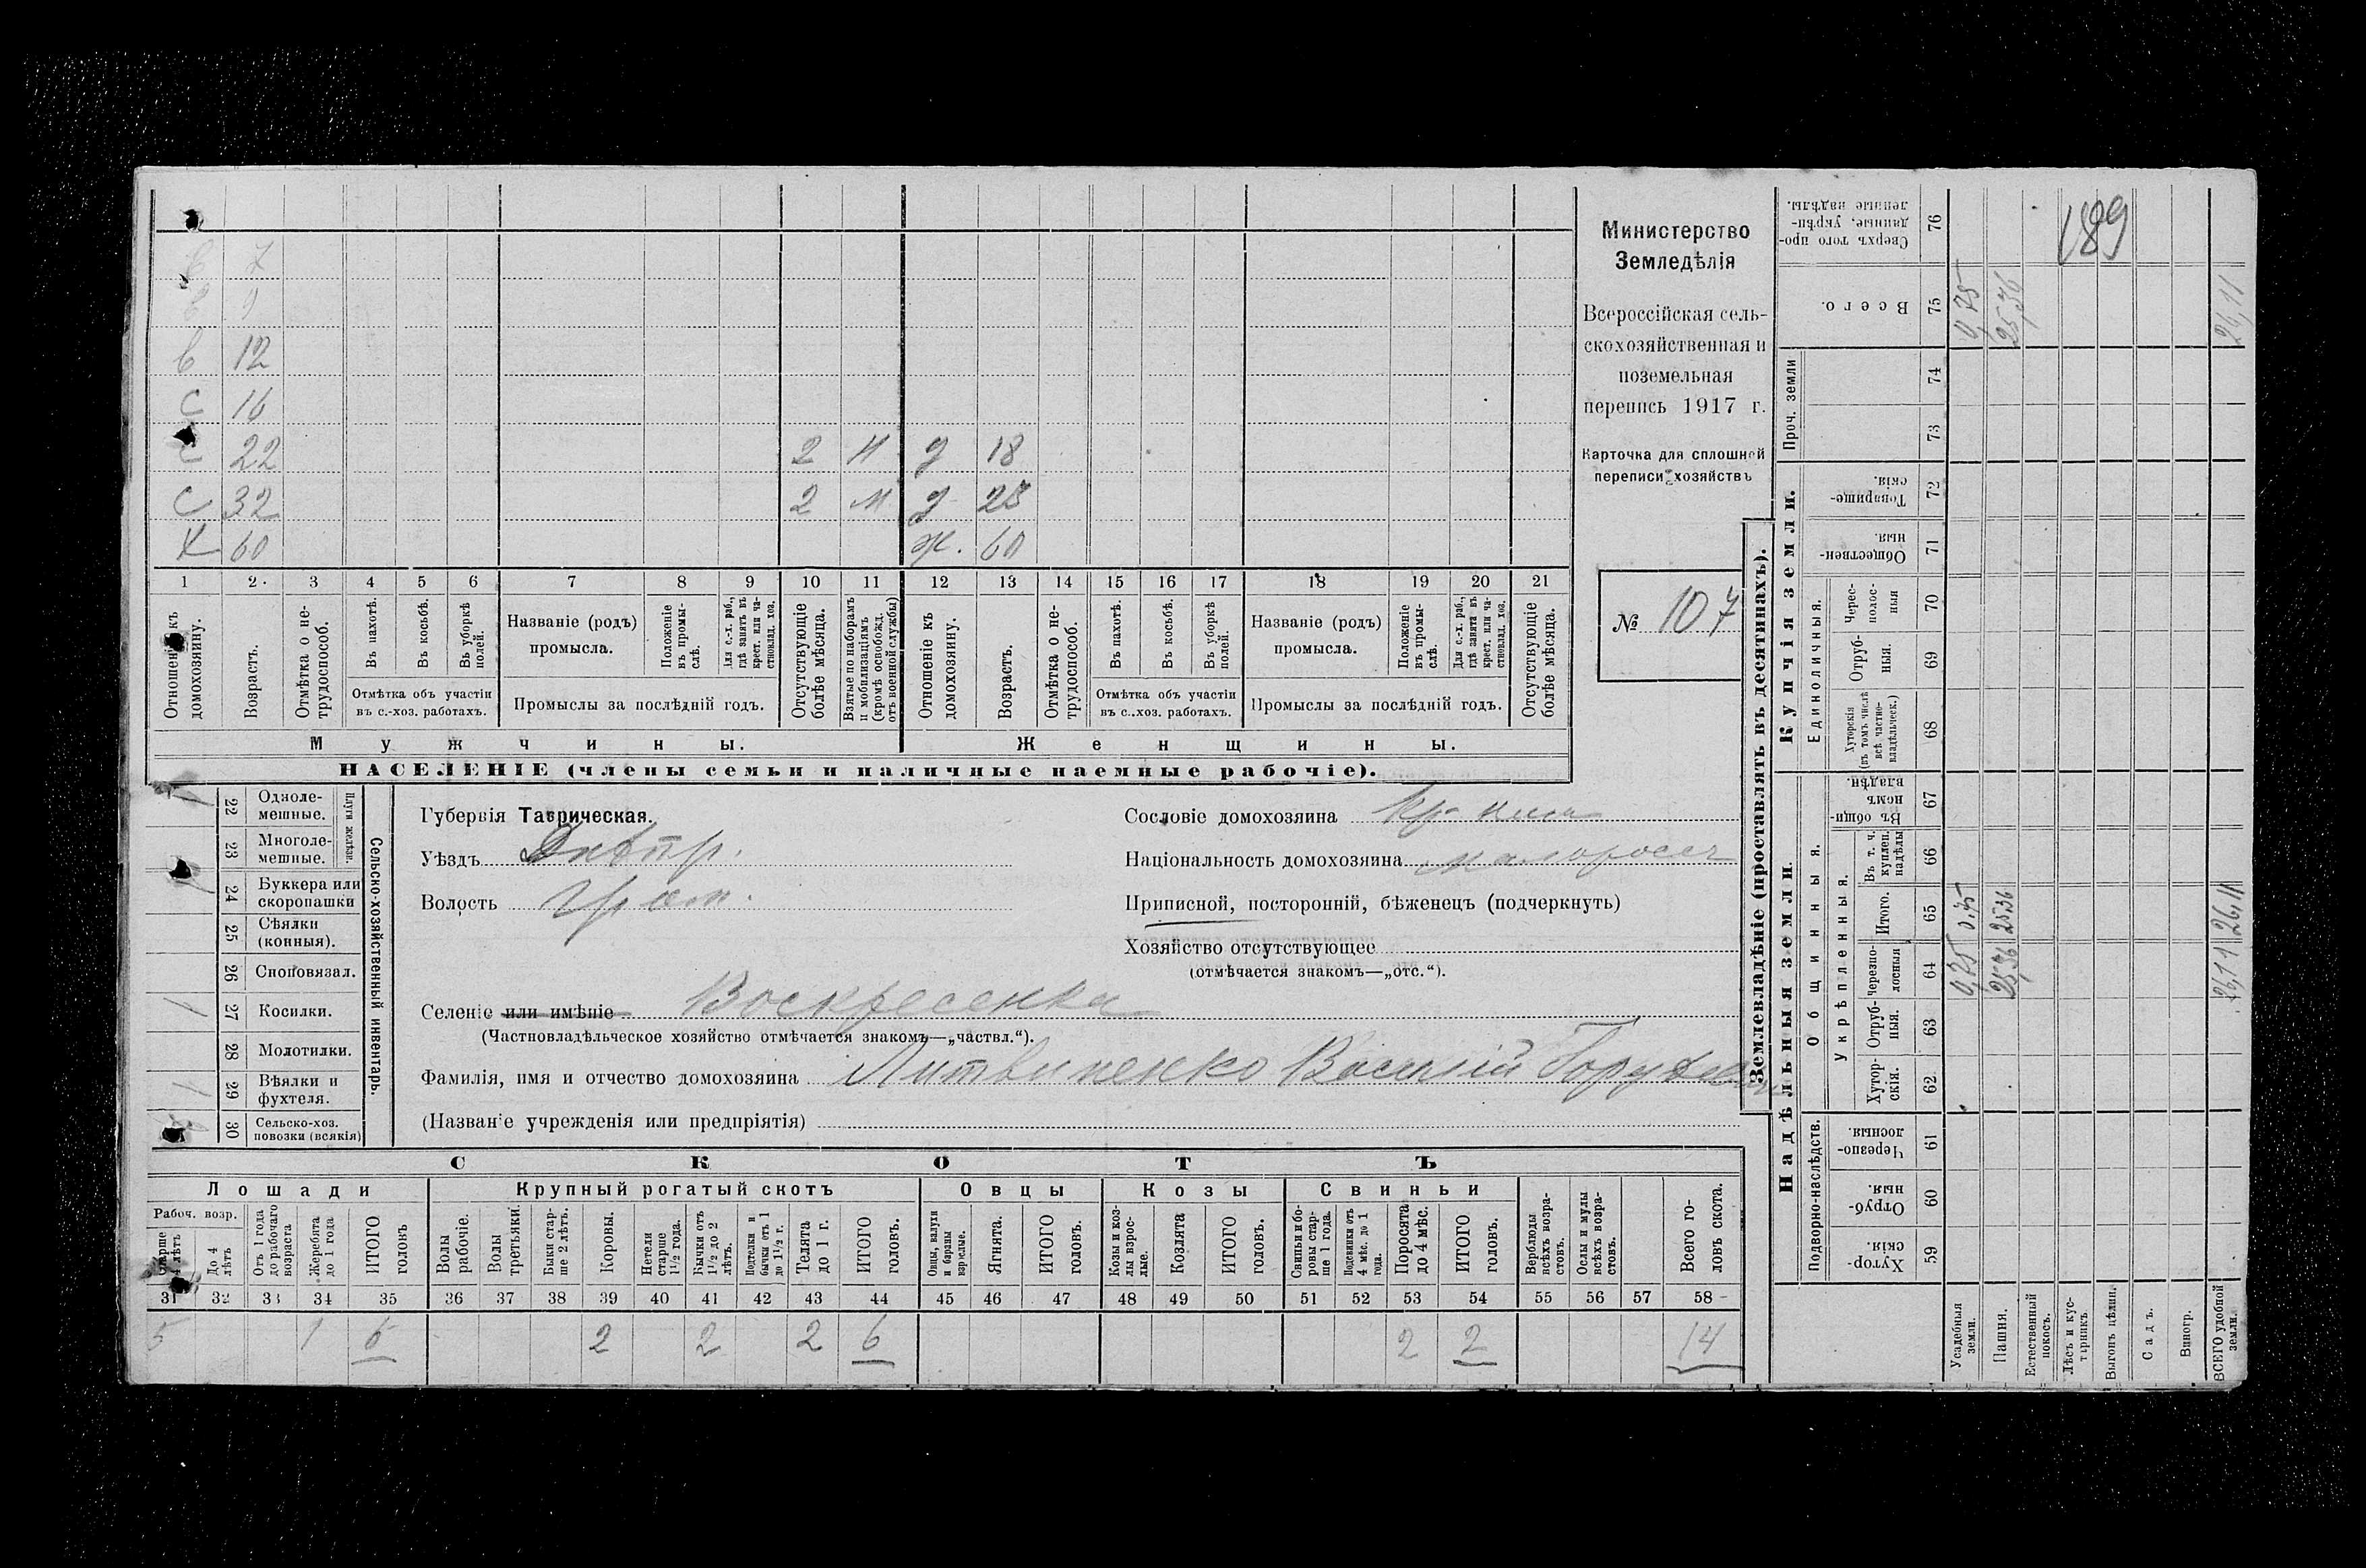 в 7
в 9
в 12
с 16
с 22 2 м д 18
с 32 2 м д 28
Х 60 ж. 60
1 2 3 4 5 6 7 8 9 10 11 12 13 14 15 16 17 18 19 20 21
Отношеніе къ домохозяину.
Возрастъ.
Отмѣтка о нетрудоспособ.
Въ пахотѣ.
Въ косьбѣ.
Въ уборкѣ полей.
Отмѣтка объ участіи въ с.-хоз. работахъ.
Названіе (родъ) промысла.
Положеніе въ промыслѣ.
Для с.-х. раб., гдѣ занятъ въ крест. или частновлад. хоз.
Промыслы за послѣдній годъ.
Отсутствующіе болѣе мѣсяца.
Взятые по наборамъ и мобилизаціямъ (кромѣ освобожд. отъ военной службы)
Отношеніе къ домохозяину.
Возрастъ.
Отмѣтка о нетрудоспособ.
Въ пахотѣ.
Въ косьбѣ.
Въ уборкѣ полей.
Отмѣтка объ участіи въ с.-хоз. работахъ.
Названіе (родъ) промысла.
Положеніе въ промыслѣ.
Для с.-х. раб., гдѣ занята въ крест. или частновлад. хоз.
Промыслы за послѣдній годъ.
Отсутствующіе болѣе мѣсяца.
Мужчины. Женщины.
НАСЕЛЕНІЕ (члены семьи и наличные наемные рабочіе).
Министерство
Земледѣлія
Всероссійская сель-
скохозяйственная и
поземельная
перепись 1917 г.
Карточка для сплошной
переписи хозяйствъ
№ 107
Сельско-хозяйственный инвентарь.
Плуги желѣзн.
1 22 Одноле-мешные.
23 Многоле-мешные.
1 24 Буккера или скоропашки
25 Сѣялки (конныя).
26 Сноповязал.
1 27 Косилки.
28 Молотилки.
1 29 Вѣялки и фухтеля.
30 Сельско-хоз. повозки (всякія)
Губернія Таврическая.
Уѣздъ Днѣпр.
Волость
Селеніе или имѣніе Воскресенка
(Частновладѣльческое хозяйство отмѣчается знакомъ—„частвл.“).
Фамилія, имя и отчество домохозяина Литвиненко Василій
(Названіе учрежденія или предпріятія)
Сословіе домохозяина
Національность домохозяина малоросс
Приписной, посторонній, бѣженецъ (подчеркнуть)
Хозяйство отсутствующее
(отмѣчается знакомъ—„отс.“).
СКОТЪ
Лошади Крупный рогатый скотъ Овцы Козы Свиньи
Рабоч. возр.
Старше 4 лѣтъ
До 4 лѣтъ
Отъ 1 года до рабочаго возраста
Жеребята до 1 года
ИТОГО головъ
Волы рабочіе.
Волы третьяки.
Быки старше 2 лѣтъ.
Коровы.
Нетели старше 1½ года.
Бычки отъ 1½ до 2 лѣтъ.
Подтелки и бычки отъ 1 до 1½ г.
Телята до 1 г.
ИТОГО головъ.
Овцы, валухи и бараны взрослые.
Ягнята.
ИТОГО головъ.
Козы и козлы взрослые.
Козлята
ИТОГО головъ.
Свиньи и боровы старше 1 года.
Подсвинки отъ 4 мѣс. до 1 года.
Поросята до 4 мѣс.
ИТОГО головъ.
Верблюды всѣхъ возрастовъ.
Ослы и мулы всѣхъ возрастовъ.
Всего головъ скота.
31 32 33 34 35 36 37 38 39 40 41 42 43 44 45 46 47 48 49 50 51 52 53 54 55 56 57 58
5 1 6 2 2 2 6 2 2 14
Землевладѣніе (проставлять въ десятинахъ).
Купчія земли.
Надѣльныя земли.
Проч. земли
Единоличныя.
Общинныя.
Укрѣпленныя.
Подворно-наслѣдств.
Сверхъ того проданные, укрѣпленные надѣлы. 76
Всего. 75
74
73
Товарищескія. 72
Общественныя 71
Черес-полос-ныя 70
Отруб-ныя. 69
Хуторскія (въ томъ числѣ всѣ частно-владѣльческ.) 68
Въ общинномъ владѣн. 67
Въ т. ч. куплен. надѣлы 66
Итого. 65
Черезпо-лосныя 64
Отруб-ныя. 63
Хутор-скія. 62
Черезпо-лосныя. 61
Отруб-ныя. 60
Хутор-скія. 59
Усадебныя земли. 0,75 0,75 0,75
Пашня. 25,36 25,36 25,36
Естественный покосъ.
Лѣсъ и кустарникъ.
Выгонъ цѣлин.
Садъ.
Виногр.
ВСЕГО удобной земли. 26,11 26,11 26,11
189